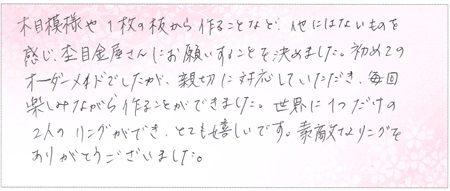 木目模様や1枚の板から作ることなど、他にはないものを
感じ、杢目金屋さんにお願いすることを決めました。初めての
オーダーメイドでしたが、親切に対応していただき、毎回
楽しみながら作ることができました。世界に1つだけの
2人のリングができ、とても嬉しいです。素敵なリングを
ありがとうございました。